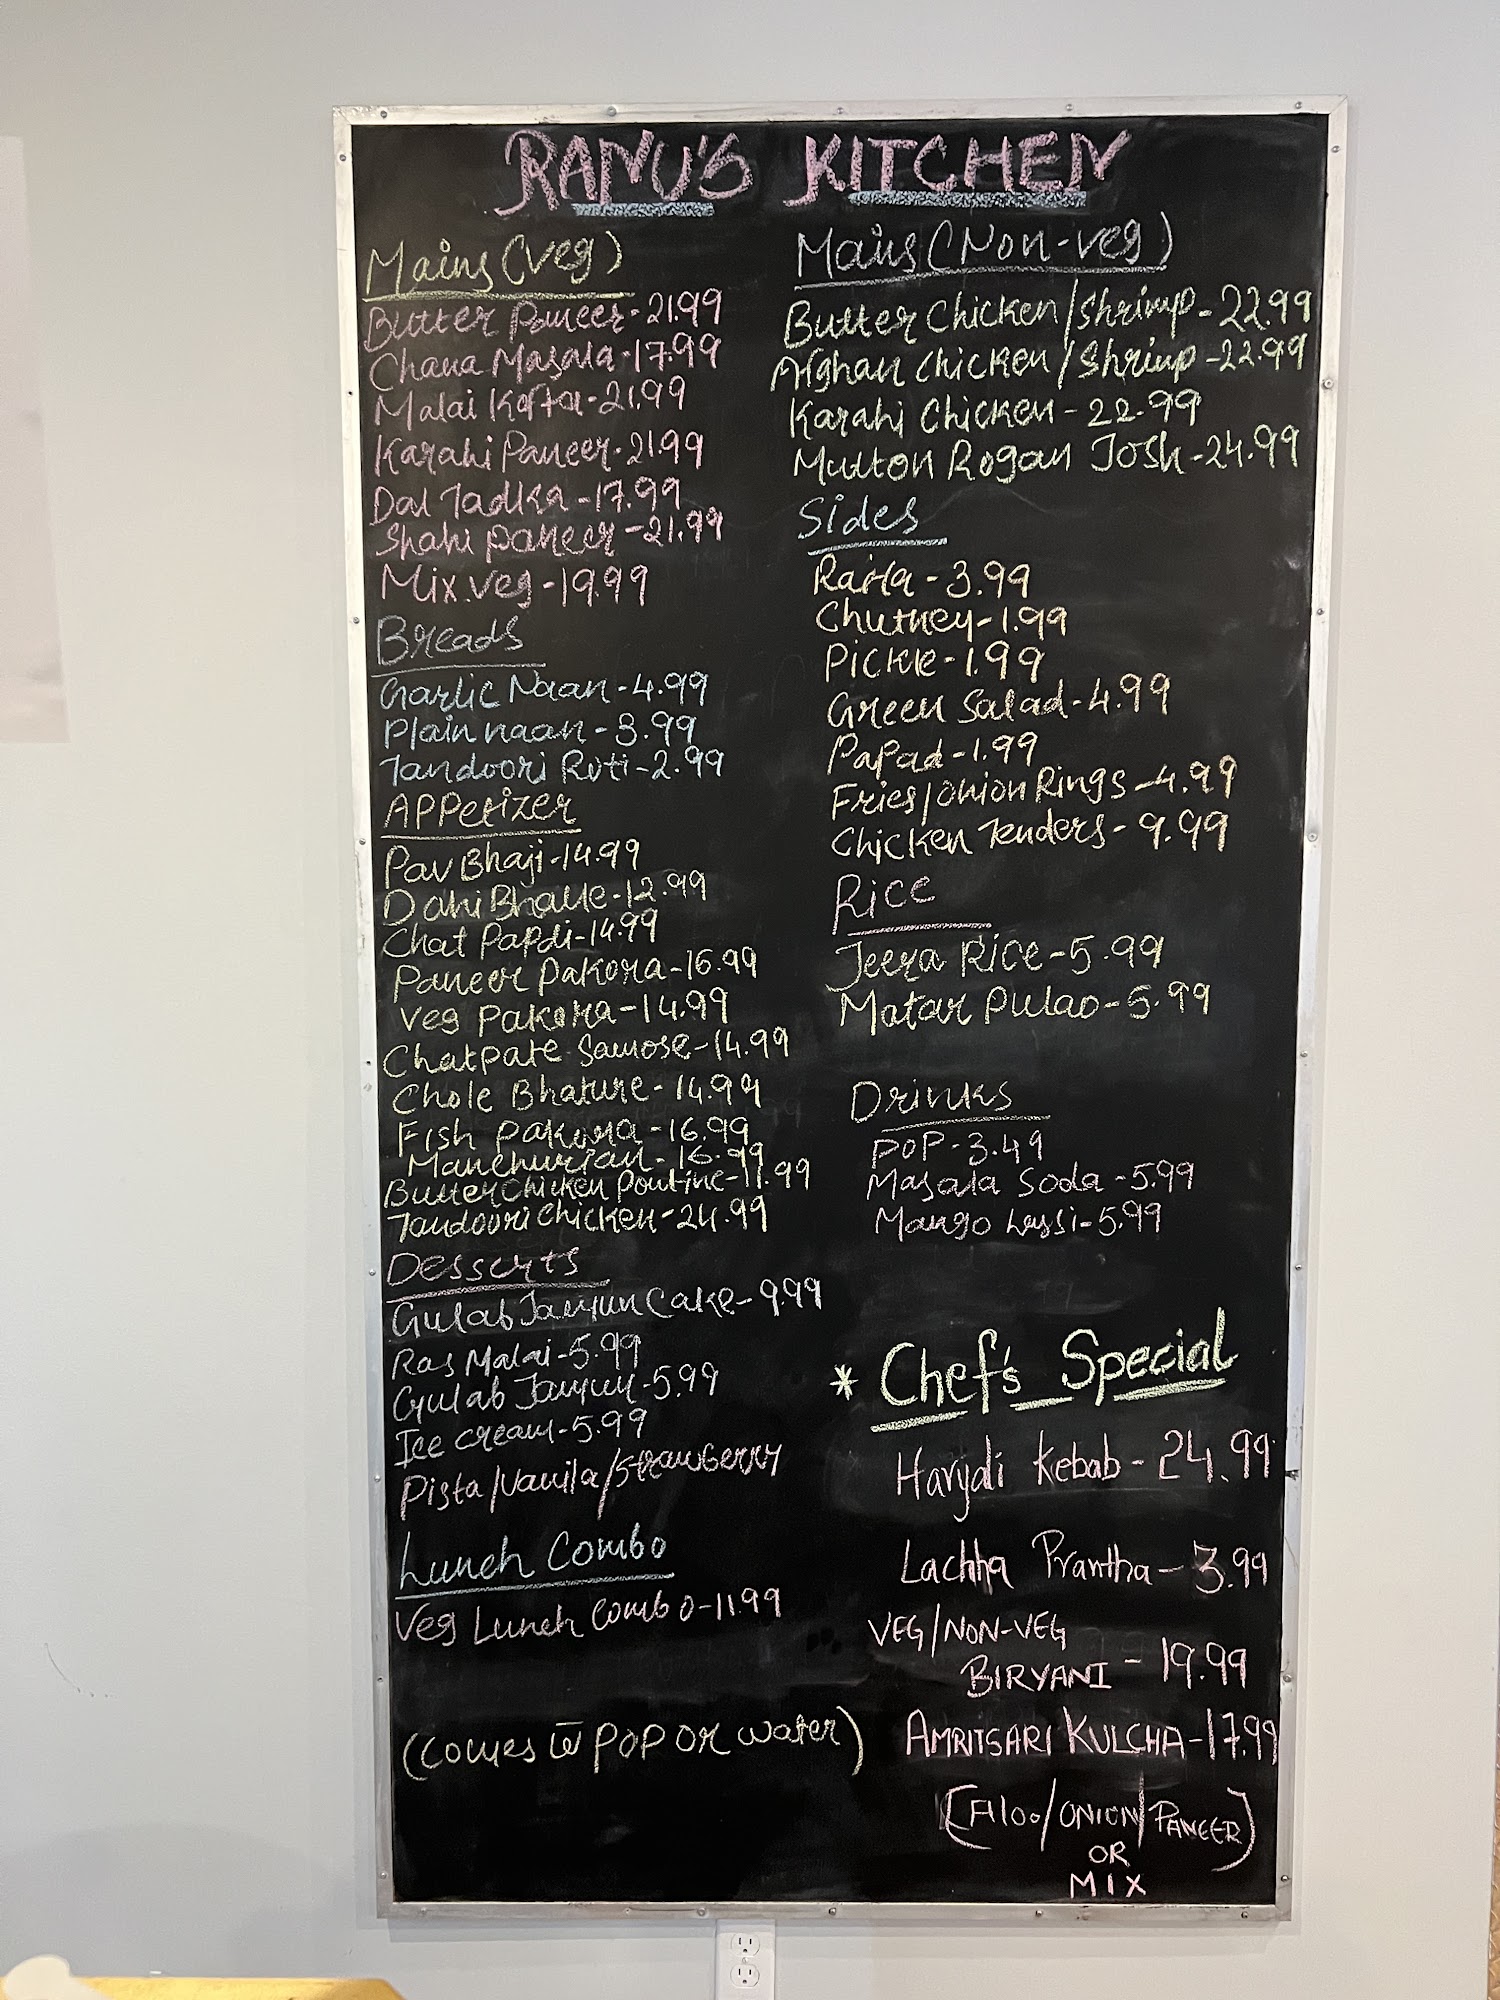 RANU'S KITCHEN
Mains (Veg)
Butter Paneer - 21.99
Chana Masala - 17.99
Malai Kofta - 21.99
Karahi Paneer - 21.99
Dal Tadka - 17.99
Shahi paneer - 21.99
Mix.veg - 19.99
Breads
Garlic Naan - 4.99
Plain naan - 3.99
Tandoori Roti - 2.99
Appetizer
Pav Bhaji - 14.99
Dahi Bhalle - 12.99
Chat Papdi - 14.99
Paneer Pakora - 16.99
Veg Pakora - 14.99
Chatpate Samose - 14.99
Chole Bhature - 14.99
Fish pakora - 16.99
Manchurian - 16.99
Butter Chicken Poutine - 11.99
Tandoori Chicken - 24.99
Desserts
Gulab Jamun Cake - 9.99
Ras Malai - 5.99
Gulab Jamun - 5.99
Ice cream - 5.99
Pista/Vanila/Strawberry
Lunch Combo
Veg Lunch Combo - 11.99
(Comes w̅ Pop or water)
Mains (Non-veg)
Butter Chicken/Shrimp - 22.99
Afghan Chicken/Shrimp - 22.99
Karahi Chicken - 22.99
Mutton Rogan Josh - 24.99
Sides
Raita - 3.99
Chutney - 1.99
Pickle - 1.99
Green Salad - 4.99
Papad - 1.99
Fries/onion Rings - 4.99
Chicken Tenders - 9.99
Rice
Jeera Rice - 5.99
Matar Pulao - 5.99
Drinks
POP - 3.49
Masala Soda - 5.99
Mango Lassi - 5.99
* Chef's Special
Haryali Kebab - 24.99
Lachha Prantha - 3.99
VEG/NON-VEG
BIRYANI - 19.99
AMRITSARI KULCHA - 17.99
(Aloo/ONION/PANEER)
OR
MIX